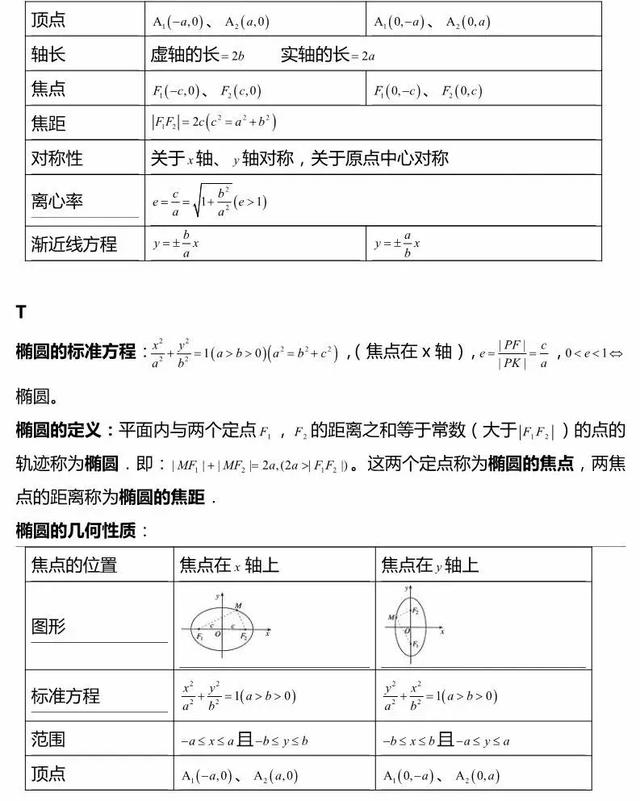 顶点 A₁(−a,0)、 A₂(a,0) A₁(0,−a)、 A₂(0,a)
轴长 虚轴的长=2b 实轴的长=2a
焦点 F₁(−c,0)、 F₂(c,0) F₁(0,−c)、 F₂(0,c)
焦距 |F₁F₂|=2c(c²=a²+b²)
对称性 关于x轴、y轴对称，关于原点中心对称
离心率 e=c/a=√(1+b²/a²)(e>1)
渐近线方程 y=±(b/a)x y=±(a/b)x
T
椭圆的标准方程：x²/a²+y²/b²=1(a>b>0)(a²=b²+c²)，（焦点在x轴），e=|PF|/|PK|=c/a，0<e<1⇔
椭圆。
椭圆的定义：平面内与两个定点F₁，F₂的距离之和等于常数（大于|F₁F₂|）的点的
轨迹称为椭圆．即：|MF₁|+|MF₂|=2a,(2a>|F₁F₂|)。这两个定点称为椭圆的焦点，两焦
点的距离称为椭圆的焦距．
椭圆的几何性质：
焦点的位置 焦点在x轴上 焦点在y轴上
图形
y M F₁ c O c F₂ x
y F₂ M O x F₁
标准方程 x²/a²+y²/b²=1(a>b>0) y²/a²+x²/b²=1(a>b>0)
范围 −a≤x≤a且−b≤y≤b −b≤x≤b且−a≤y≤a
顶点 A₁(−a,0)、 A₂(a,0) A₁(0,−a)、 A₂(0,a)